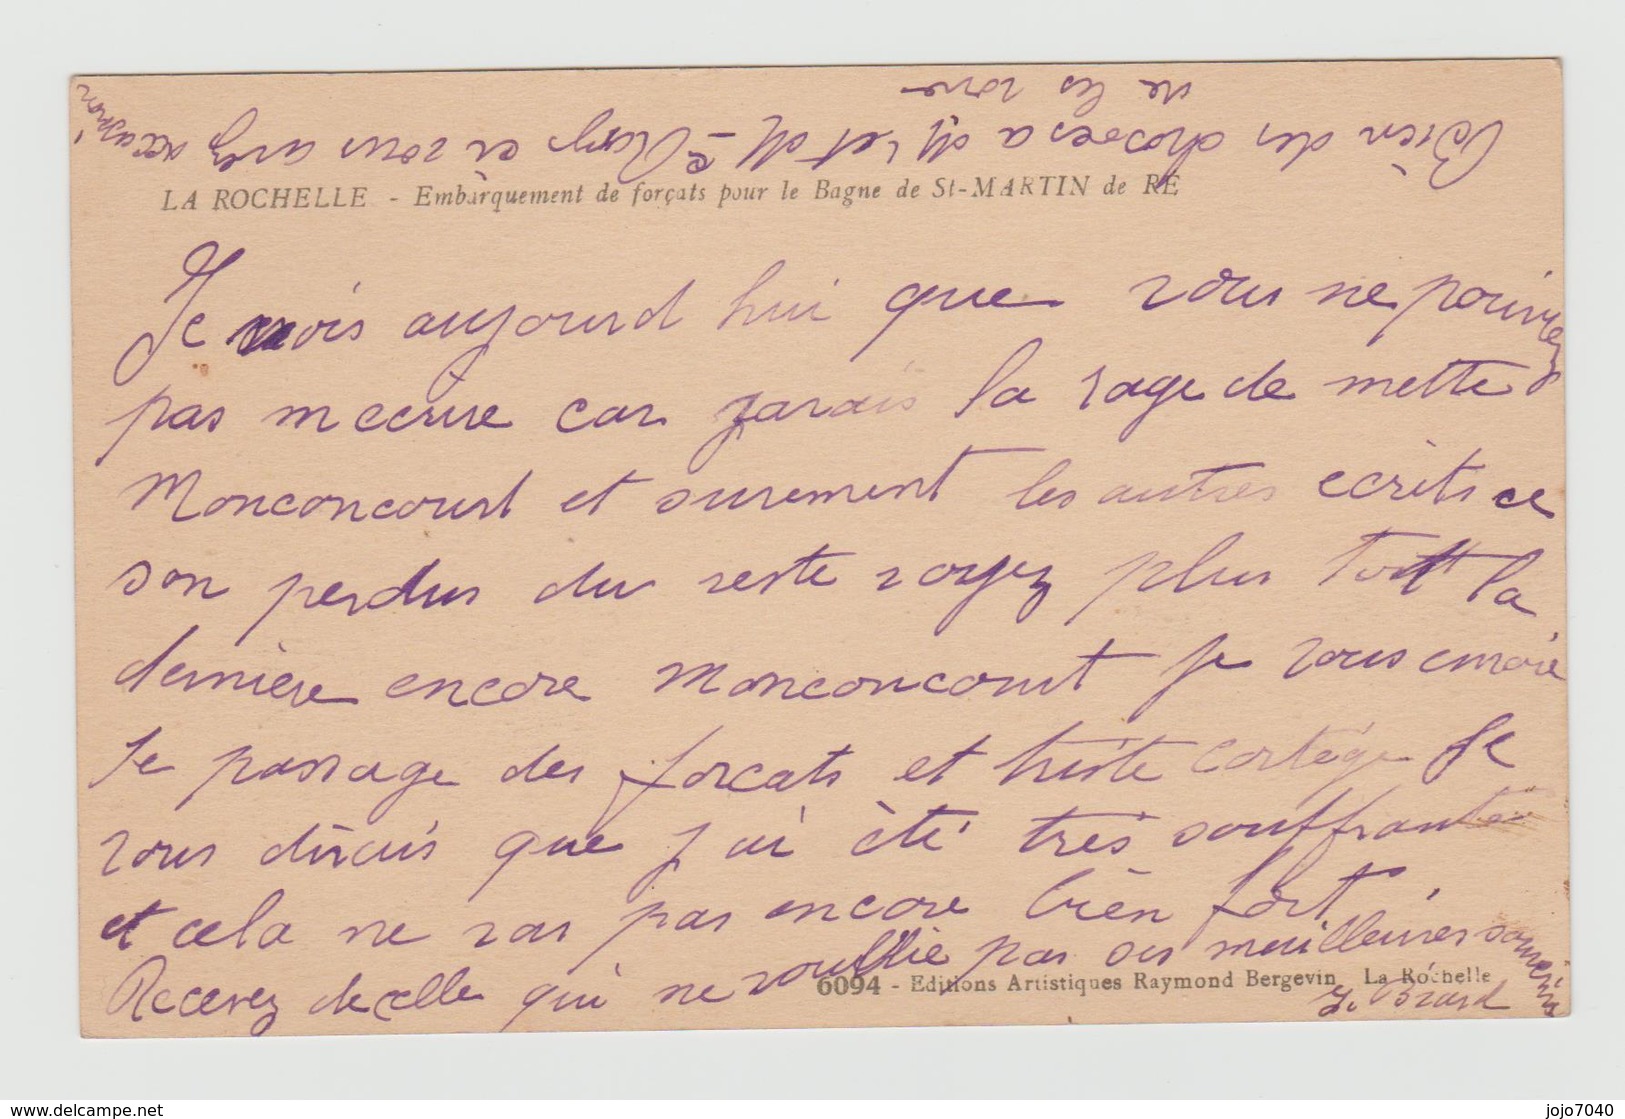 LA ROCHELLE - Embarquement de forçats pour le Bagne de St-MARTIN de RÉ
Je vois aujourd hui que vous ne pouviez
pas mecrire car javais la rage de mettre
Monconcourt et surement les autres ecrits ce
son perdus du reste voyez plus tott la
dernière encore Monconcourt je vous envoie
le passage des forcats et triste cortège Je
vous dirais que j ai été très souffrante
et cela ne vas pas encore bièn fort
Recevez de celle qui ne vous oublie pas ses meilleures souvenirs
Y. Bérard
6094 - Editions Artistiques Raymond Bergevin La Rochelle
Bien des choses a Mr et Mme si vous avez occasion
de les voir
jojo7040